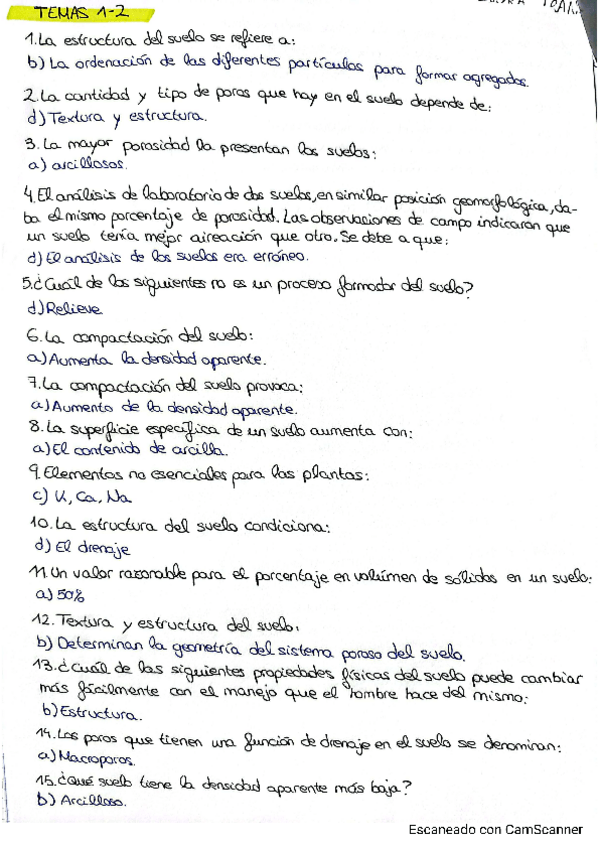 TEMAS 1-2
1. La estructura del suelo se refiere a:
b) La ordenación de las diferentes partículas para formar agregados.
2. La cantidad y tipo de poros que hay en el suelo depende de:
d) Textura y estructura.
3. La mayor porosidad la presentan los suelos:
a) arcillosos.
4. El análisis de laboratorio de dos suelos, en similar posición geomorfológica, da-
ba el mismo porcentaje de porosidad. Las observaciones de campo indicaron que
un suelo tenía mejor aireación que otro. Se debe a que:
d) El análisis de los suelos era erróneo.
5. ¿Cuál de los siguientes no es un proceso formador del suelo?
d) Relieve
6. La compactación del suelo:
a) Aumenta la densidad aparente.
7. La compactación del suelo provoca:
a) Aumento de la densidad aparente.
8. La superficie específica de un suelo aumenta con:
a) El contenido de arcilla.
9. Elementos no esenciales para las plantas:
c) K, Ca, Na
10. La estructura del suelo condiciona:
d) El drenaje
11. Un valor razonable para el porcentaje en volúmen de sólidos en un suelo:
a) 50%
12. Textura y estructura del suelo:
b) Determinan la geometría del sistema poroso del suelo.
13. ¿Cuál de las siguientes propiedades físicas del suelo puede cambiar
más fácilmente con el manejo que el hombre hace del mismo:
b) Estructura.
14. Los poros que tienen una función de drenaje en el suelo se denominan:
a) Macroporos.
15. ¿Qué suelo tiene la densidad aparente más baja?
b) Arcilloso.
Escaneado con CamScanner